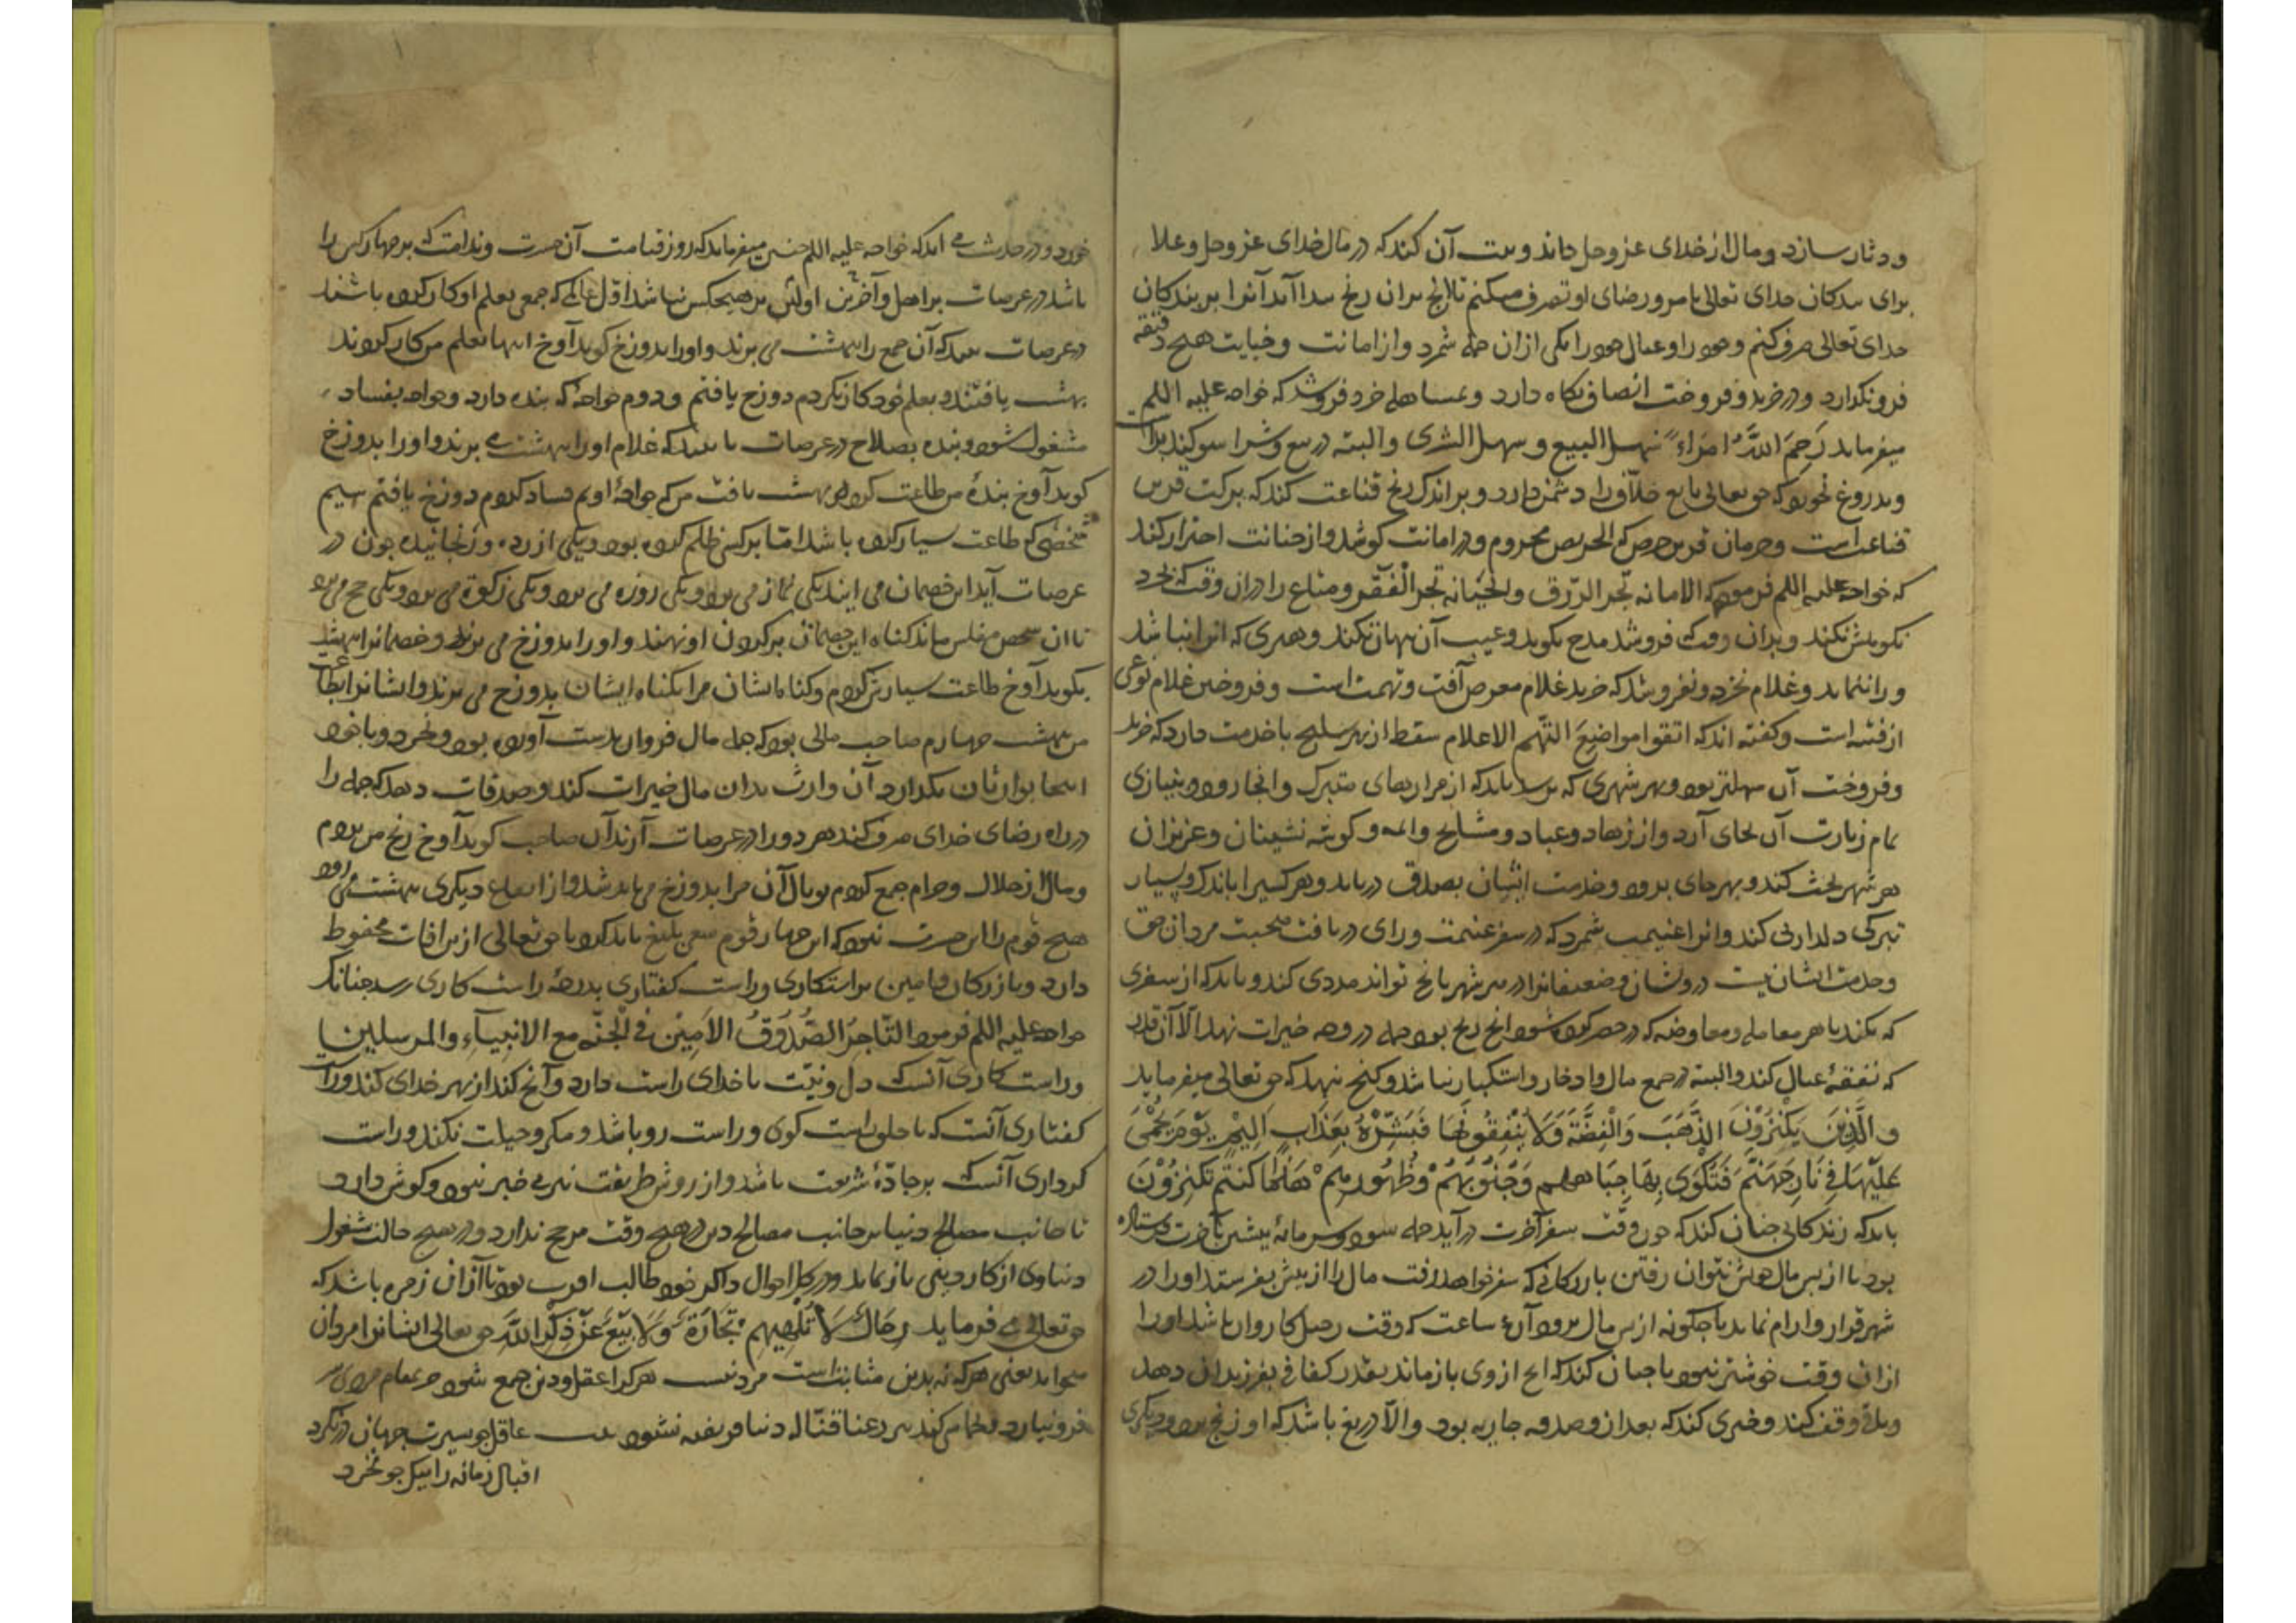 و دثار سازد و مال از خدای عز و جل داند و نیت آن کند که در مال خدای عز و جل و علا
برای بندکان خدای تعالی بامر و رضای او تصرف میکنم تا آنچ بدان رنج بیدا آید آنرا بر بندکان
خدای تعالی صرف کنم و خود را و عیال خود را یکی از آن جمله شمرد و از امانت و خیانت هیچ دقیقه
فرو نکذارد و در خرید و فروخت انصاف نکاه دارد و بمساهله خرد و فروشد که خواجه علیه السلم
میفرماید رَحِمَ اللّهُ امرَاءً سهل البیع و سهل الشری و البته در بیع و شرا سوکند براست
و بدروغ نخورد که حق تعالی بایع حلاف را دشمن دارد و بر اندک رنج قناعت کند که برکت قرین
قناعت است و حرمان قرین حرص که الحریص محروم و در امانت کوشد و از خیانت احتراز کند
که خواجه علیه السلم فرمود که الامانه تجر الرزق و الخیانه تجر الفقر و متاع را در آن وقت که بخرد
نکوهش نکند و بدان وقت که فروشد مدح نکوید و عیب آن بنهان نکند و هنری که آنرا نباشد
ورا ننماید و غلام نخرد و نفروشد که خرید غلام معرض آفت و تهمت است و فروختن غلام نوعی
از فتنه است و کفته اند که اتقوا مواضع التهم الا غلام سقط از بهر سلیح با خدمت دارد که خرید
و فروخت آن سهلتر بود و بهر شهری که برسد باید که از مزارهای متبرک و آنجا رود و بنیازی
تمام زیارت آن بجای آرد و از زهاد و عباد و مشایخ و ائمه و کوشه نشینان و عزیزان
هر شهر بحث کند و بهر جای برود و خدمت ایشان بصدق دریابد و هر کسیرا باندک و بسیار
تبرکی دلداری کند و آنرا غنیمت شمرد که در سفر غنیمت ورای دریافت صحبت مردان حق
و خدمت ایشان نیست درویشان و ضعیفانرا در هر شهر بانچ تواند مددی کند و باید که از سفری
که بکند یا هر معامله و معاوضه که در حضر کرده شود آنچ ربح بود جمله در وجه خیرات نهد الا آن قدر
که نفقهٔ عیال کند و البته در جمع مال و ادخار و استکبار نباشد و کنج ننهد که حق تعالی میفرماید
وَالَّذِینَ یَکْنِزُوْنَ الذَّهَبَ وَالْفِضَّةَ وَلَا یُنْفِقُونَهَا فَبَشِّرْهُمْ بِعَذَابٍ اَلِیْمٍ یَوْمَ یُحْمَی
عَلَیْهَا فِی نَارِ جَهَنَّمَ فَتُکْوَی بِهَا جِبَاهُهُم وَجُنُوبُهُمْ وَظُهُورُهُمْ هَذَا مَا کَنَزْتُمْ تَکْنِزُوْنَ
باید که زندکانی چنان کند که چون وقت سفر آخرت درآید جمله سود و سرمایه پیشین بآخرت فرستاده
بود تا از بس مال خویش نتوان رفتن بازرکانی که سفر خواهد رفت مال را از پیش بفرستد او را در
شهر قرار و آرام نماند تا چکونه از بس مال برود آن ساعت که وقت رحیل کاروان باشد او را
از آن وقت خوشتر نبود یا چنان کند که آنچ از وی بازماند بقدر کفاف بفرزندان دهد
و باقی وقف کند و خیری کند که بعد از و صدقه جاریه بود و الا دریغ باشد که او رنج برد و دیکری
خورد و در حدیث می آید که خواجه علیه السلم چنین میفرماید که روز قیامت آن حسرت و ندامت که بر چهار کس را
باشد در عرصات بر اهل و آخرین اولین بر هیچکس نباشد اول عالمی که جمعی بعلم او کار کرده باشند
در عرصات بیند که آن جمع را ببهشت می برند و او را بدوزخ کوید آوخ اینها بعلم من کار کردند
بهشت یافتند و بعلم خود کار نکردم دوزخ یافتم و دوم خواجهٔ که بنده دارد و خواجه بفساد
مشغول شود و بنده بصلاح در عرصات بیند که غلام او را ببهشت می برند و او را بدوزخ
کوید آوخ بندهٔ من طاعت کرد بهشت یافت من که خواجهٔ اویم فساد کردم دوزخ یافتم سیم
شخصی که طاعت بسیار کرده باشد اما بر کسی ظلم کرده بود و یکی از زده و رنجانیده چون در
عرصات آید این خصمان می آیند یکی نماز می برد و یکی روزه می برد و یکی زکوة می برد و یکی حج می برد
تا آن شخص مفلس ماند کناه این خصمان بر کردن او نهند و او را بدوزخ می برند و خصمانرا ببهشت
بکوید آوخ طاعت بسیار من کردم و کناه ایشان مرا بکناه ایشان بدوزخ می برند و ایشانرا بطاعت
من بهشت چهارم صاحب مالی بود که جمله مال فراوان بدست آورده بود و نخرد و با خود
اینجا بوارثان بکذارد آن وارث بدان مال خیرات کند و صدقات دهد که جمله را
در راه رضای خدای صرف کند هر دو را در عرصات آرند آن صاحب کوید آوخ رنج من بردم
و مال از حلال و حرام جمع کردم بوبال آن مرا بدوزخ می باید شد و از انتفاع دیکری بهشت می رود
هیچ قوم را این حسرت نبود که این چهار قوم سعی بلیغ باید کرد تا حق تعالی از این آفات محفوظ
دارد و بازرکان را میین براستکاری و راست کفتاری بدرجهٔ راست کاری رسد چنانک
خواجه علیه السلم فرمود التَّاجِرُ الصَّدُوْقُ الاَمِیْنُ فِی الْجَنَّه مع الانبیآءِ والمرسلین
و راست کاری آنست که دل و نیت با خدای راست دارد و آنچ کند از بهر خدای کند و راست
کفتاری آنست که با خلق راست کوی و راست رو باشد و مکر و حیلت نکند و راست
کرداری آنست که بر جادهٔ شریعت باشد و از روش طریقت نیز بی خبر نبود و کوش دارد
تا جانب مصالح دنیا بر جانب مصالح دین در هیچ وقت مرجح ندارد و در هیچ حالت مشغول
دنیاوی از کار دینی باز نماید و در کل احوال ذاکر خود طالب بود تا از آن زمره باشد که
حق تعالی می فرماید رِجَالٌ لَا تُلْهِیْهِمْ تِجَارَةٌ وَلَا بَیْعٌ عَنْ ذِکْرِ اللَّهِ حق تعالی ایشانرا مردان
میخواند یعنی هرکه نه بدین مثابت است مرد نیست هرکرا عقل و دین جمع شود در مقام مردی سر
فرو نیارد نظام کند بس رعنا قتاله دنیا فریفته نشود بیت عاقل بجو سیرت جهان درنکرد
اقبال زمانه را بیک جو نخرد